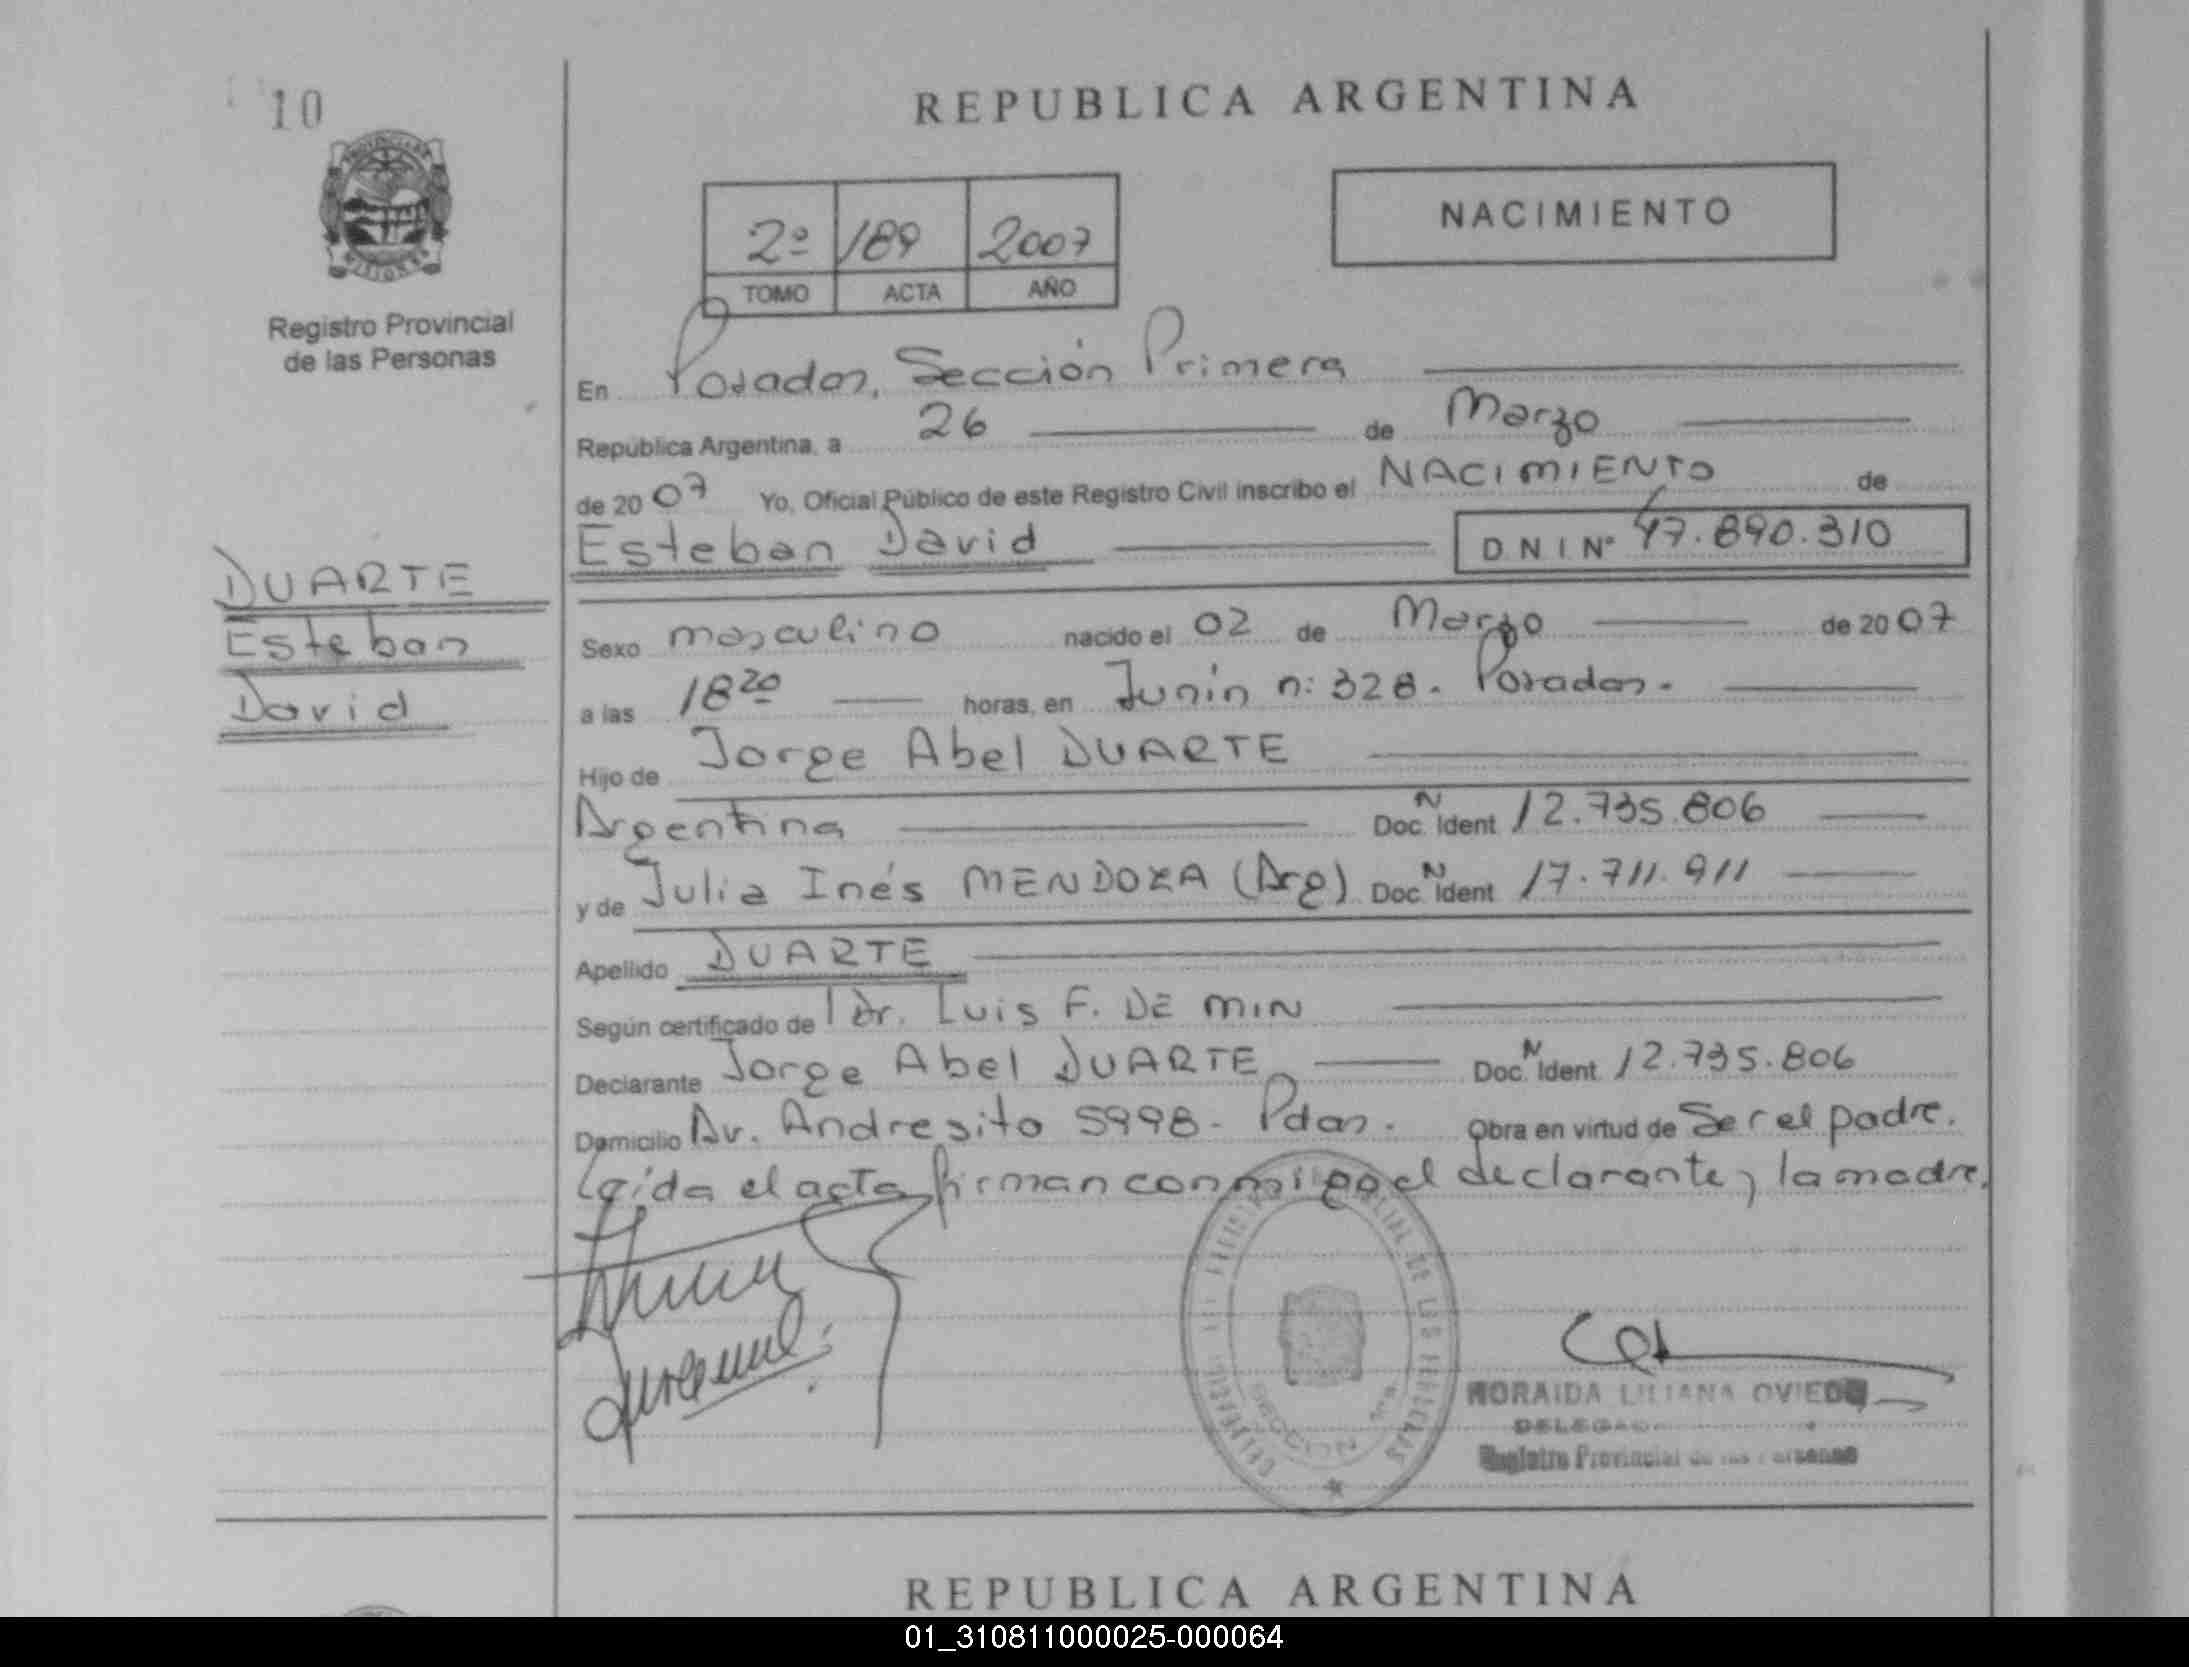 10
REPUBLICA ARGENTINA
PROVINCIA DE
MISIONES
Registro Provincial
de las Personas
2º 189 2007
TOMO ACTA AÑO
NACIMIENTO
En Posadas, Sección Primera
República Argentina, a 26 de Marzo
de 2007 Yo, Oficial Público de este Registro Civil inscribo el NACIMIENTO de
Esteban David DNI Nº 47.890.310
DUARTE
Esteban
David
Sexo masculino nacido el 02 de Marzo de 2007
a las 18 20 horas, en Junín n: 328. Posadas.
Hijo de Jorge Abel DUARTE
Argentina Doc. N Ident 12.735.806
y de Julia Inés MENDOZA (Arg) Doc. N Ident 17.711.911
Apellido DUARTE
Según certificado de Dr. Luis F. DE MIN
Declarante Jorge Abel DUARTE Doc. N Ident. 12.735.806
Domicilio Av. Andresito 5998 - Pdas. Obra en virtud de Ser el padre.
Leída el acta firman conmigo el declarante y la madre.
DE LAS PERSONAS
SECCION 1ra
NORAIDA LILIANA OVIEDO
Registro Provincial de las Personas
REPUBLICA ARGENTINA
01_310811000025-000064